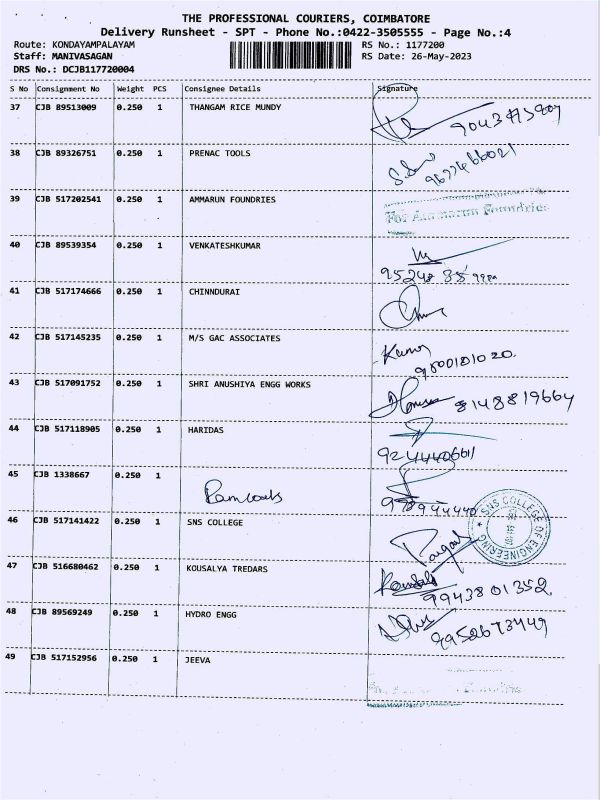 THE PROFESSIONAL COURIERS, COIMBATORE
Delivery Runsheet - SPT - Phone No.:0422-3505555 - Page No.:4
Route: KONDAYAMPALAYAM RS No.: 1177200
Staff: MANIVASAGAN RS Date: 26-May-2023
DRS No.: DCJB117720004
S No Consignment No Weight PCS Consignee Details Signature
37 CJB 89513009 0.250 1 THANGAM RICE MUNDY
38 CJB 89326751 0.250 1 PRENAC TOOLS
39 CJB 517202541 0.250 1 AMMARUN FOUNDRIES
For Ammarun Foundries
40 CJB 89539354 0.250 1 VENKATESHKUMAR
41 CJB 517174666 0.250 1 CHINNDURAI
42 CJB 517145235 0.250 1 M/S GAC ASSOCIATES
Kumar
9800181020
43 CJB 517091752 0.250 1 SHRI ANUSHIYA ENGG WORKS
8148819664
44 CJB 517118905 0.250 1 HARIDAS
45 CJB 1338667 0.250 1
46 CJB 517141422 0.250 1 SNS COLLEGE
SNS COLLEGE OF ENGINEERING
47 CJB 516680462 0.250 1 KOUSALYA TREDARS
9943801352
48 CJB 89569249 0.250 1 HYDRO ENGG
9952673449
49 CJB 517152956 0.250 1 JEEVA